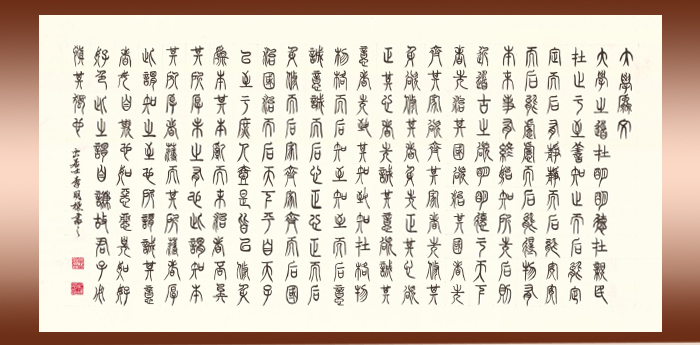 大學原文
大學之道在明明德在親民
在止于至善知止而后有定
定而后能靜靜而后能安安
而后能慮慮而后能得物有
本末事有終始知所先后則
近道古之欲明明德于天下
者先治其國欲治其國者先
齊其家欲齊其家者先修其
身欲修其身者先正其心欲
正其心者先誠其意欲誠其
意者先致其知致知在格物
物格而后知至知至而后意
誠意誠而后心正心正而后
身修而后家齊家齊而后國
治國治而后天下平自天子
以至于庶人壹是皆以修身
為本其本亂而末治者否矣
其所厚未之有也此謂知本
其所厚者薄而其所薄者厚
此謂知之至也所謂誠其意
者毋自欺也如惡惡臭如好
好色此之謂自謙故君子必
慎其獨也